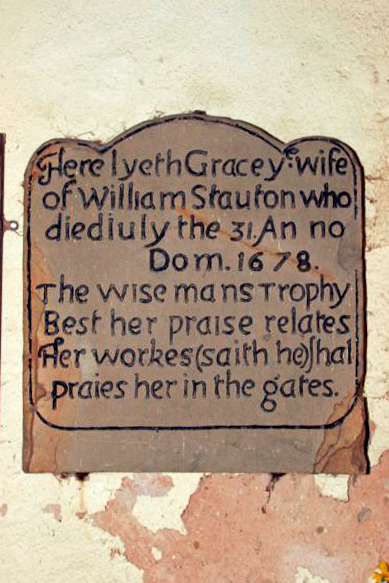 Here lyeth Grace yᵉ: wife
of William Stauton who
died iuly the 31. An no
Dom. 1678.
The wise mans Trophy
Best her praise relates
Her workes (saith he) ſhal
praies her in the gates.